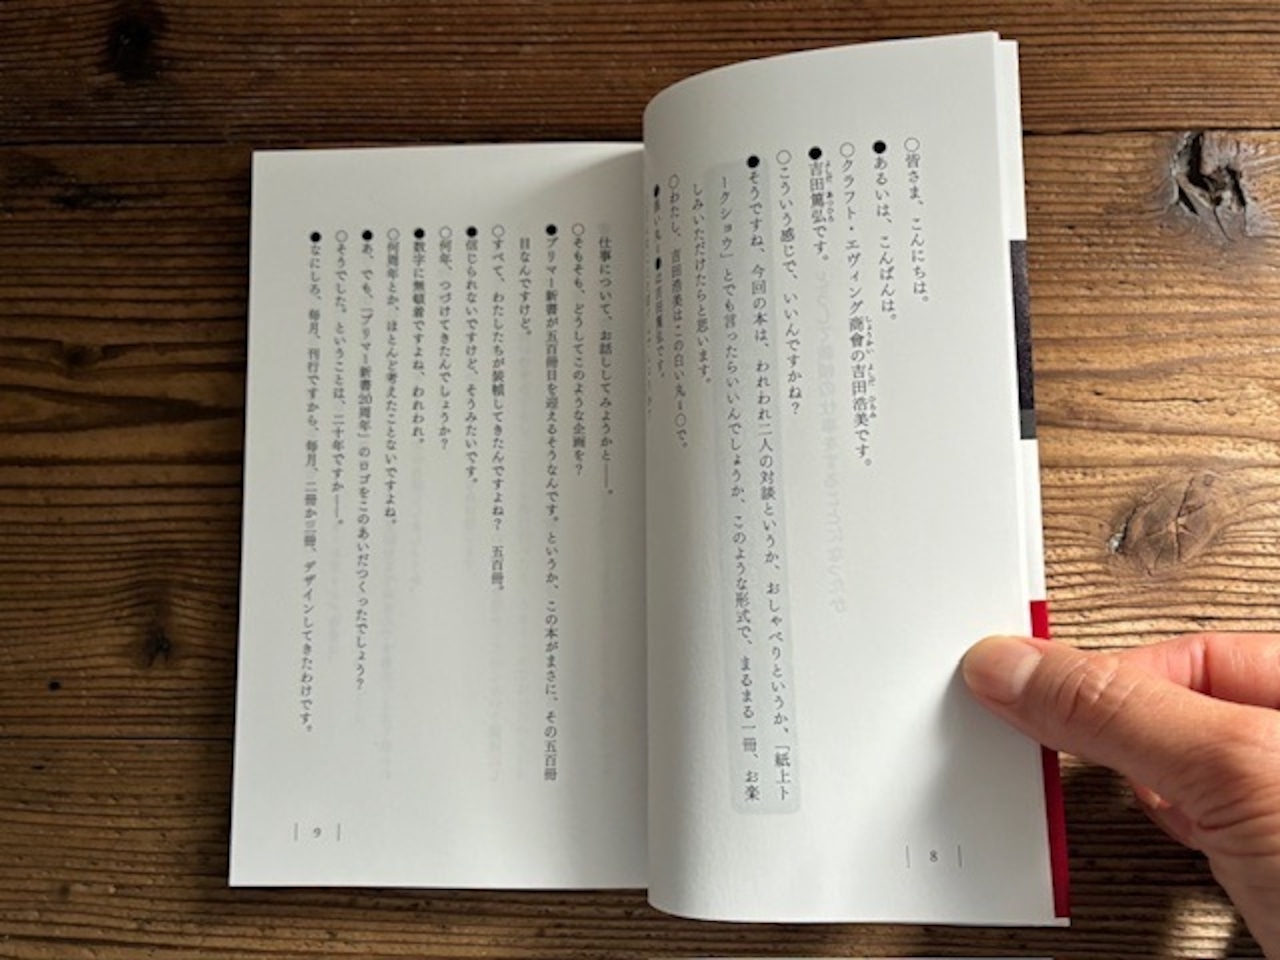 ○皆さま、こんにちは。
●あるいは、こんばんは。
○クラフト・エヴィング商會の吉田浩美です。
しょうかい よしだ ひろみ
●吉田篤弘です。
よしだ あつひろ
○こういう感じで、いいんですかね?
●そうですね、今回の本は、われわれ二人の対談というか、おしゃべりというか、「紙上ト
ークショウ」とでも言ったらいいんでしょうか、このような形式で、まるまる一冊、お楽
しみいただけたらと思います。
○わたし、吉田浩美はこの白い丸=○で、
●黒い丸=●は吉田篤弘です。
8
仕事について、お話ししてみようかと――。
○そもそも、どうしてこのような企画を?
●プリマー新書が五百冊目を迎えるそうなんです。というか、この本がまさに、その五百冊
目なんですけど。
○すべて、わたしたちが装幀してきたんですよね? 五百冊。
●信じられないですけど、そうみたいです。
○何年、つづけてきたんでしょうか?
●数字に無頓着ですよね、われわれ。
○何周年とか、ほとんど考えたことないですよね。
●あ、でも、「プリマー新書20周年」のロゴをこのあいだつくったでしょう?
○そうでした。ということは、二十年ですか――。
●なにしろ、毎月、刊行ですから、毎月、二冊か三冊、デザインしてきたわけです。
9